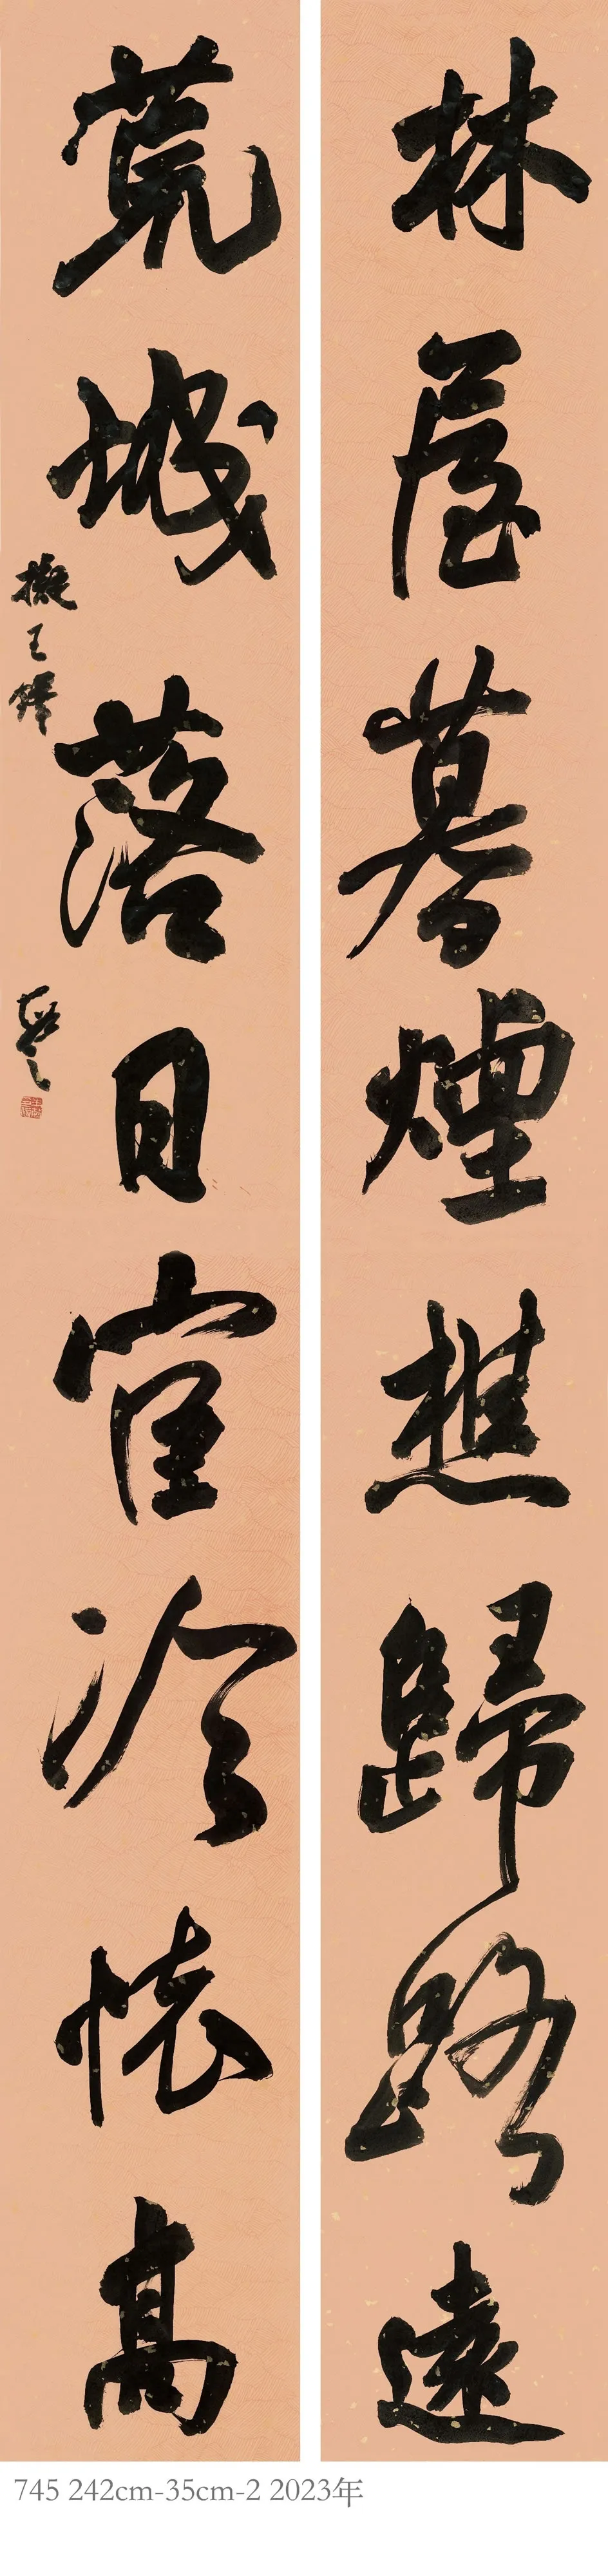 林屋暮煙樵歸路遠
荒城落日官冷懷高
擬王鐸
745 242cm-35cm-2 2023年